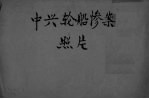 中兴轮船惨案
照片